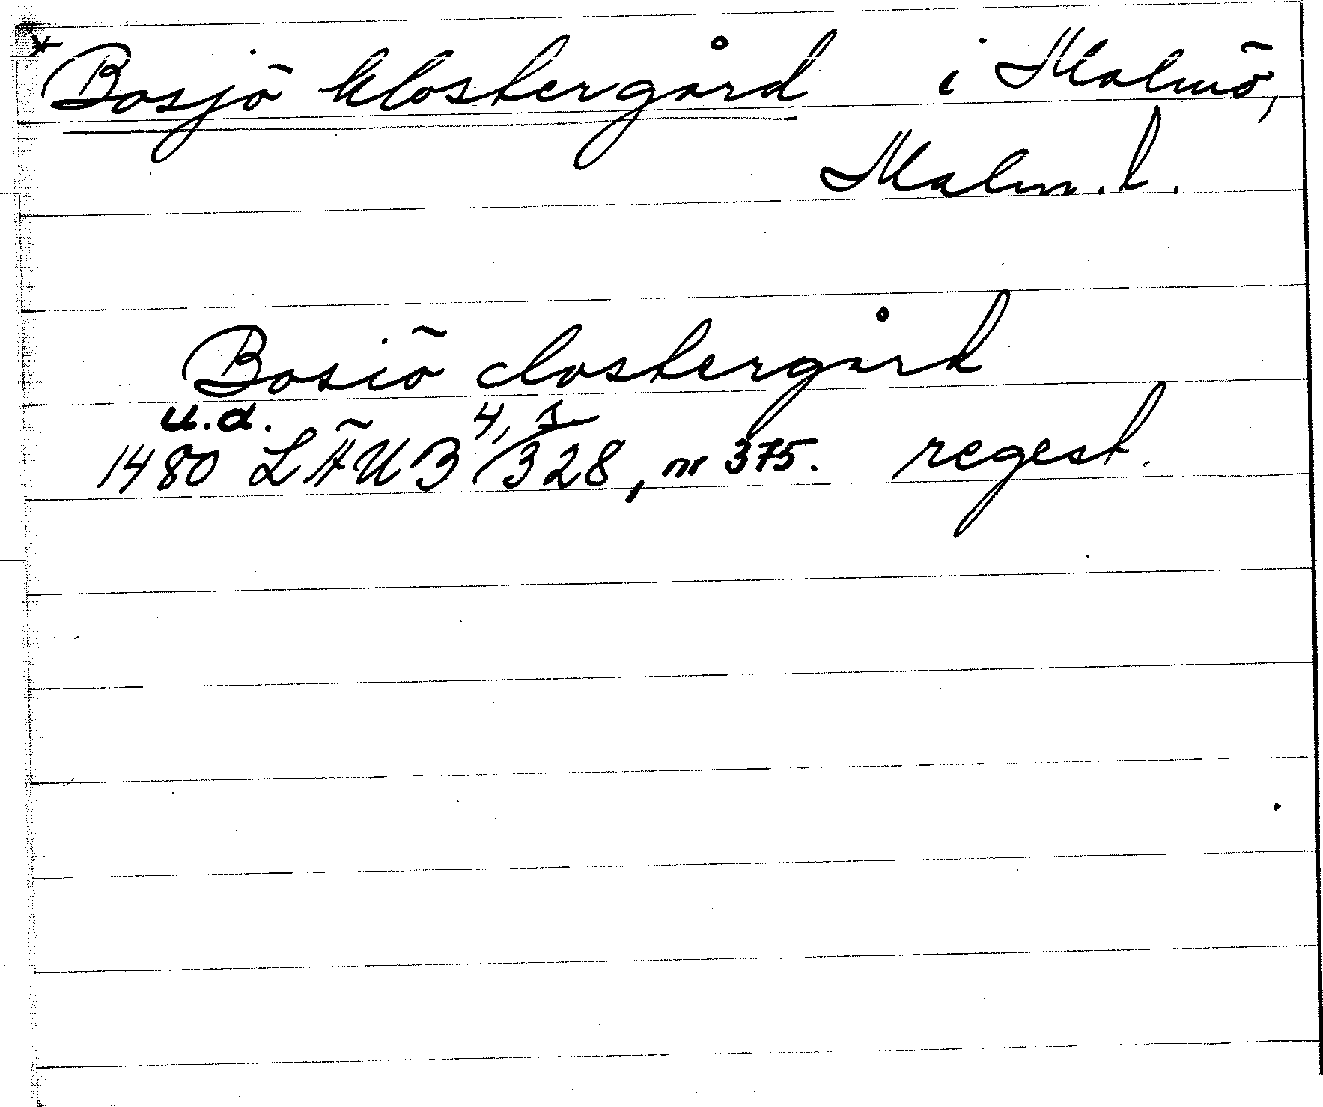 Bosjö klostergård i Malmö,
Malm. l.
Bosiö clostergård
u.d. 4, s
1480 LÄUB 328, nr 375. regest.